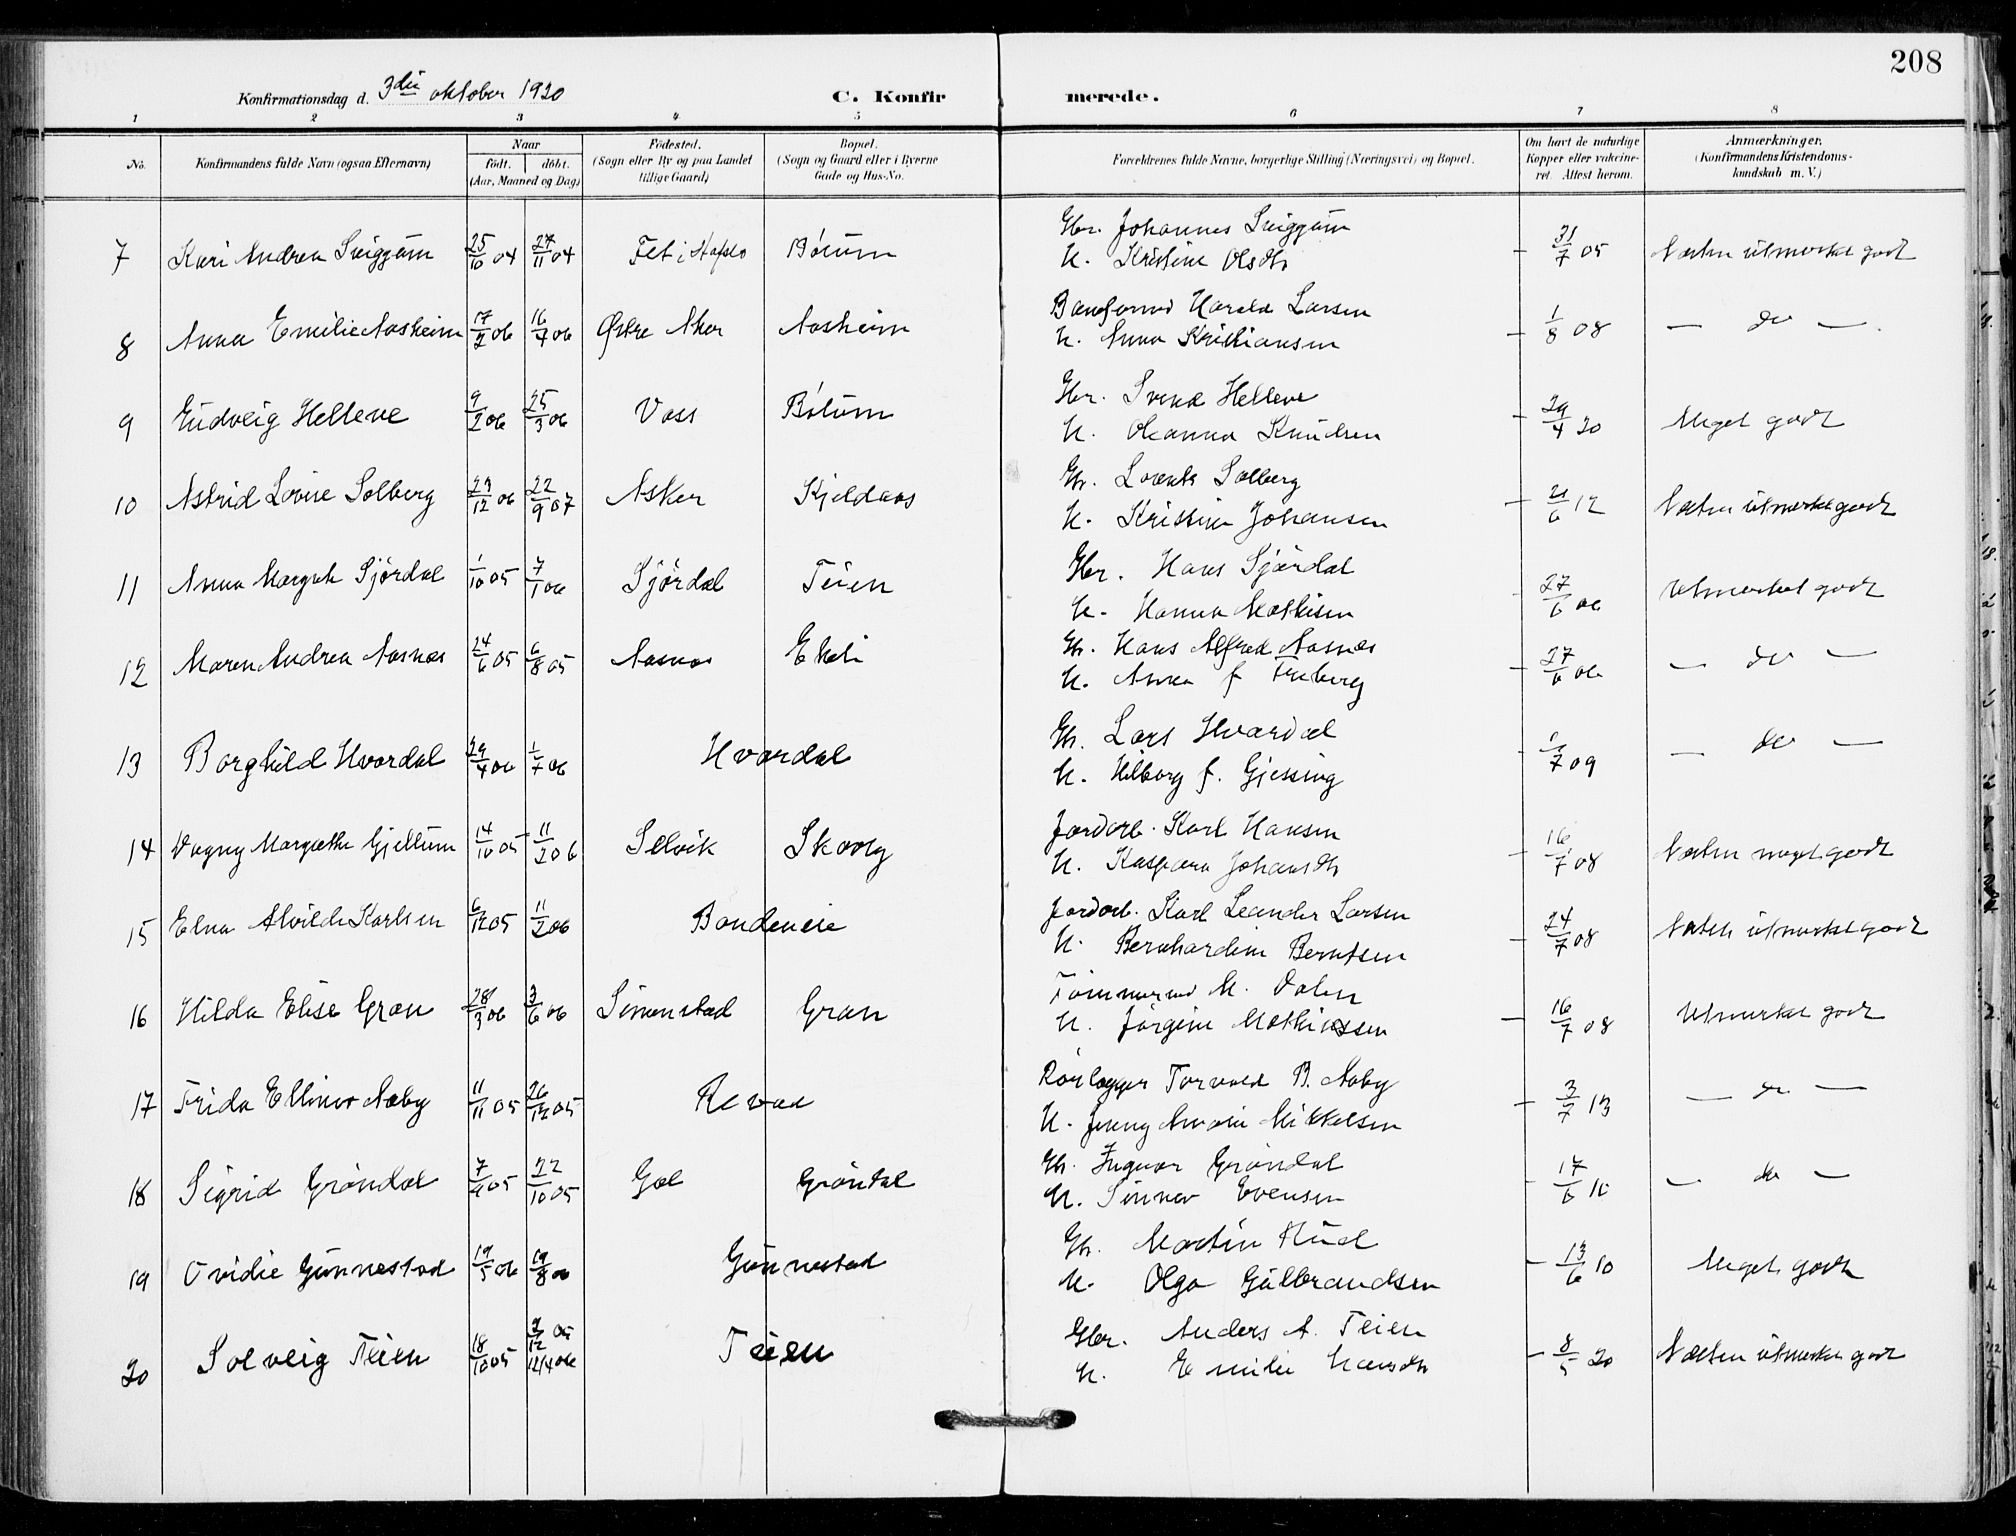 208
Konfirmationsdag d. 3die oktober 1920
C. Konfirmerede.
1 2 3 4 5 6 7 8
No.
Konfirmandens fulde Navn (ogsaa Efternavn)
Naar
født. døbt.
(Aar, Maaned og Dag)
Fødested.
(Sogn eller By og paa Landet
tillige Gaard)
Bopæl.
(Sogn og Gaard eller i Byerne
Gade og Hus-No.
Forældrenes fulde Navne, borgerlige Stilling (Næringsvei) og Bopæl.
Om havt de naturlige
Kopper eller vakcine-
ret. Attest herom.
Anmærkninger.
(Konfirmandens Kristendoms-
kundskab m. V.)
Gbr. Johannes Sviggum
7 Kari Andrea Sviggum 25/10 04 27/11 04 Fet i Hafslo Bølum – 31/7 05 Næsten utmerket godt
U. Kristine Olsdtr
Harald Larsen
8 Anna Emilie Aasheim 17/2 06 16/4 06 Østre Aker Aasheim – 1/8 08 — do —
U. Anna Kristiansen
Gbr. Svend Helleve
9 Gudveig Helleve 9/2 06 25/3 06 Voss Bølum – 29/4 20 Meget godt
U. Oleanna Knudsen
Gbr. Lorents Solberg
10 Astrid Lovise Solberg 29/12 06 22/9 07 Asker Kjeldaas – 21/6 12 Næsten utmerket godt
U. Kristine Johansen
Gbr. Hans Sjørdal
11 Anna Margrete Sjørdal 1/10 05 7/1 06 Sjørdal Teien – 27/6 06 Utmerket godt
U. Hanna Mathisen
Gbr. Hans Alfred Aasnes
12 Maren Andrea Aasnes 24/6 05 6/8 05 Aasnes Ekeli – 27/6 06 — do —
U. Anna f. Freberg
Gbr. Lars Hvardal
13 Borghild Hvardal 29/4 06 1/7 06 Hvardal – /7 09 — do —
U. Hilborg f. Gjessing
Jordarb. Karl Hansen
14 Dagny Margrethe Gjellum 14/10 05 11/2 06 Selvik Skaug – 16/7 08 Næsten meget godt
U. Kaspara Johansdtr
Jordarb. Karl Leander Larsen
15 Elna Alvilde Karlsen 6/12 05 11/2 06 Bondeneie – 24/7 08 Næsten utmerket godt
U. Bernhardine Berntsen
Tømmermd M. Dalen
16 Hilda Elise Gran 28/3 06 3/6 06 Simenstad Gran – 16/7 08 Utmerket godt
U. Jørgine Mathiassen
Rørlegger Torvald B. Aaby
17 Frida Ellinor Aaby 11/11 05 26/12 05 Revaa – 3/7 13 — do —
U. Jenny Amalie Mikkelsen
Gbr. Ingvar Grøndal
18 Sigrid Grøndal 7/9 05 22/10 05 Gol Grøndal – 17/6 10 — do —
U. Sønnev Evensen
Gbr. Martin Rud
19 Ovidie Gunnestad 19/5 06 19/8 06 Gunnestad – 13/6 10 Meget godt
U. Olga Gulbrandsen
Gbr. Anders A. Teien
20 Solveig Teien 18/10 05 3/12 05 12/4 06 Teien – 8/5 20 Næsten utmerket godt
U. Emilie Hansdtr